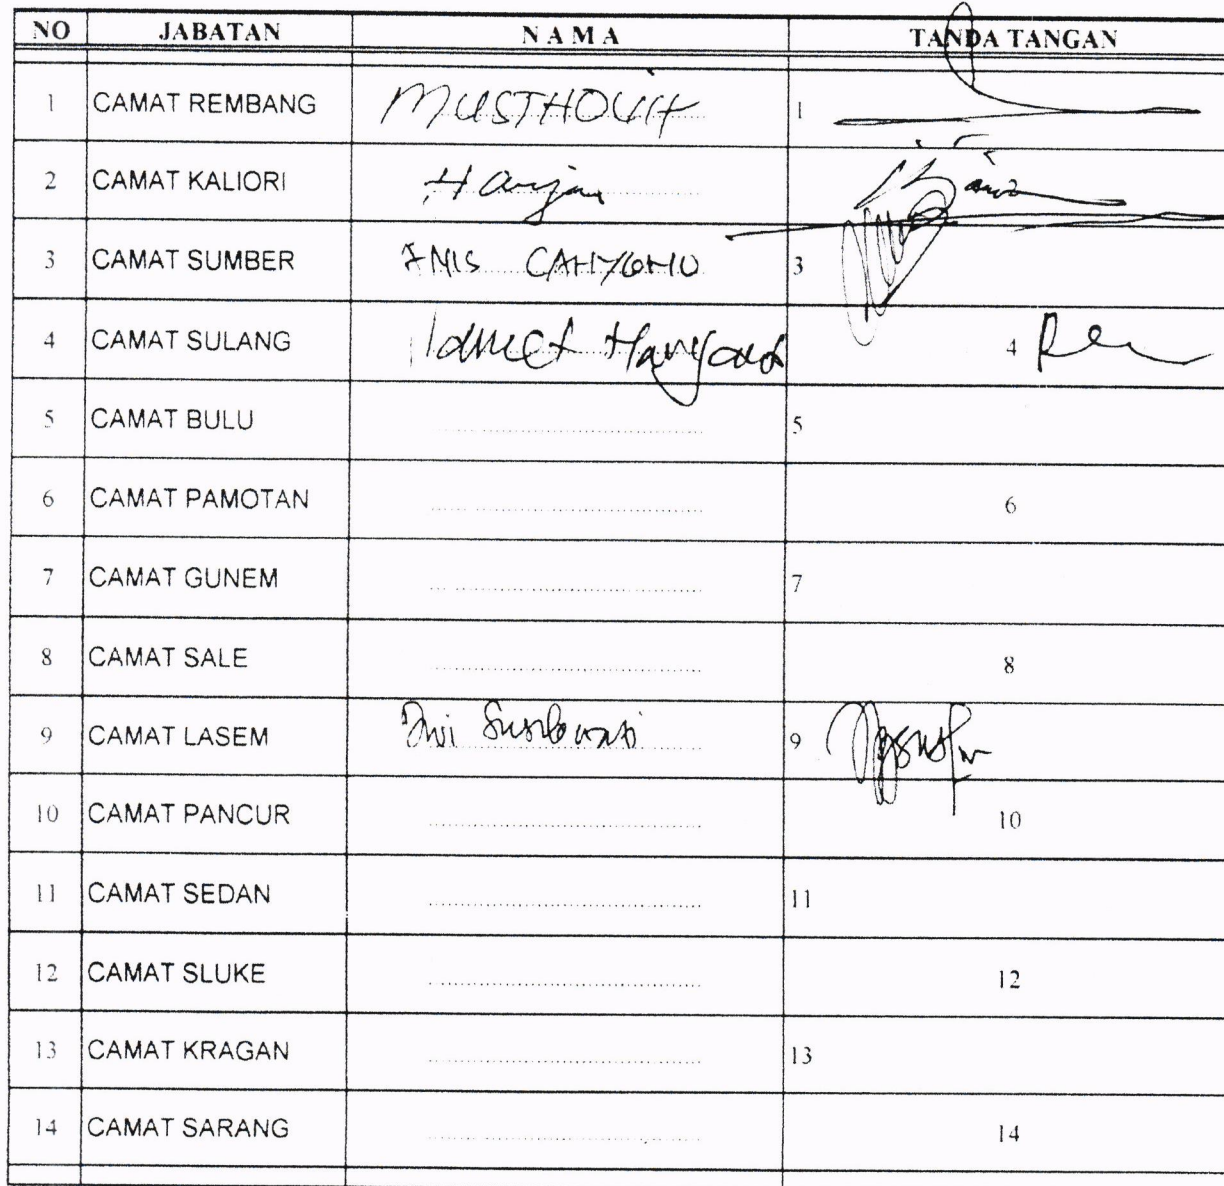 NO JABATAN NAMA TANDA TANGAN
1 CAMAT REMBANG MUSTHOLIH 1
2 CAMAT KALIORI Haryan
3 CAMAT SUMBER CAHYONO 3
4 CAMAT SULANG 4
5 CAMAT BULU 5
6 CAMAT PAMOTAN 6
7 CAMAT GUNEM 7
8 CAMAT SALE 8
9 CAMAT LASEM Dwi Susilowati 9
10 CAMAT PANCUR 10
11 CAMAT SEDAN 11
12 CAMAT SLUKE 12
13 CAMAT KRAGAN 13
14 CAMAT SARANG 14